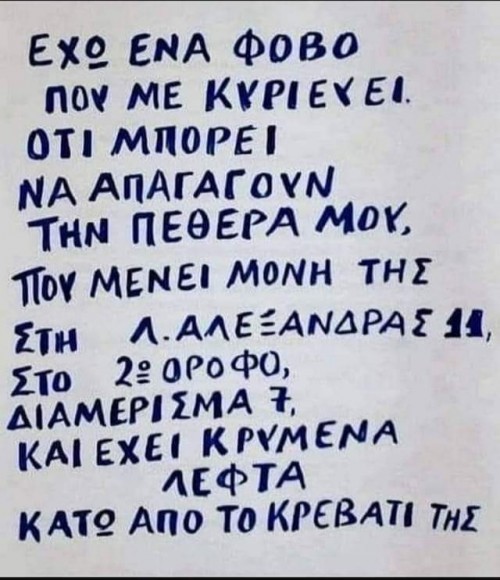 ΕΧΩ ΕΝΑ ΦΟΒΟ
ΠΟΥ ΜΕ ΚΥΡΙΕΥΕΙ.
ΟΤΙ ΜΠΟΡΕΙ
ΝΑ ΑΠΑΓΑΓΟΥΝ
ΤΗΝ ΠΕΘΕΡΑ ΜΟΥ,
ΠΟΥ ΜΕΝΕΙ ΜΟΝΗ ΤΗΣ
ΣΤΗ Λ.ΑΛΕΞΑΝΔΡΑΣ 11,
ΣΤΟ 2º ΟΡΟΦΟ,
ΔΙΑΜΕΡΙΣΜΑ 7,
ΚΑΙ ΕΧΕΙ ΚΡΥΜΕΝΑ
ΛΕΦΤΑ
ΚΑΤΩ ΑΠΟ ΤΟ ΚΡΕΒΑΤΙ ΤΗΣ